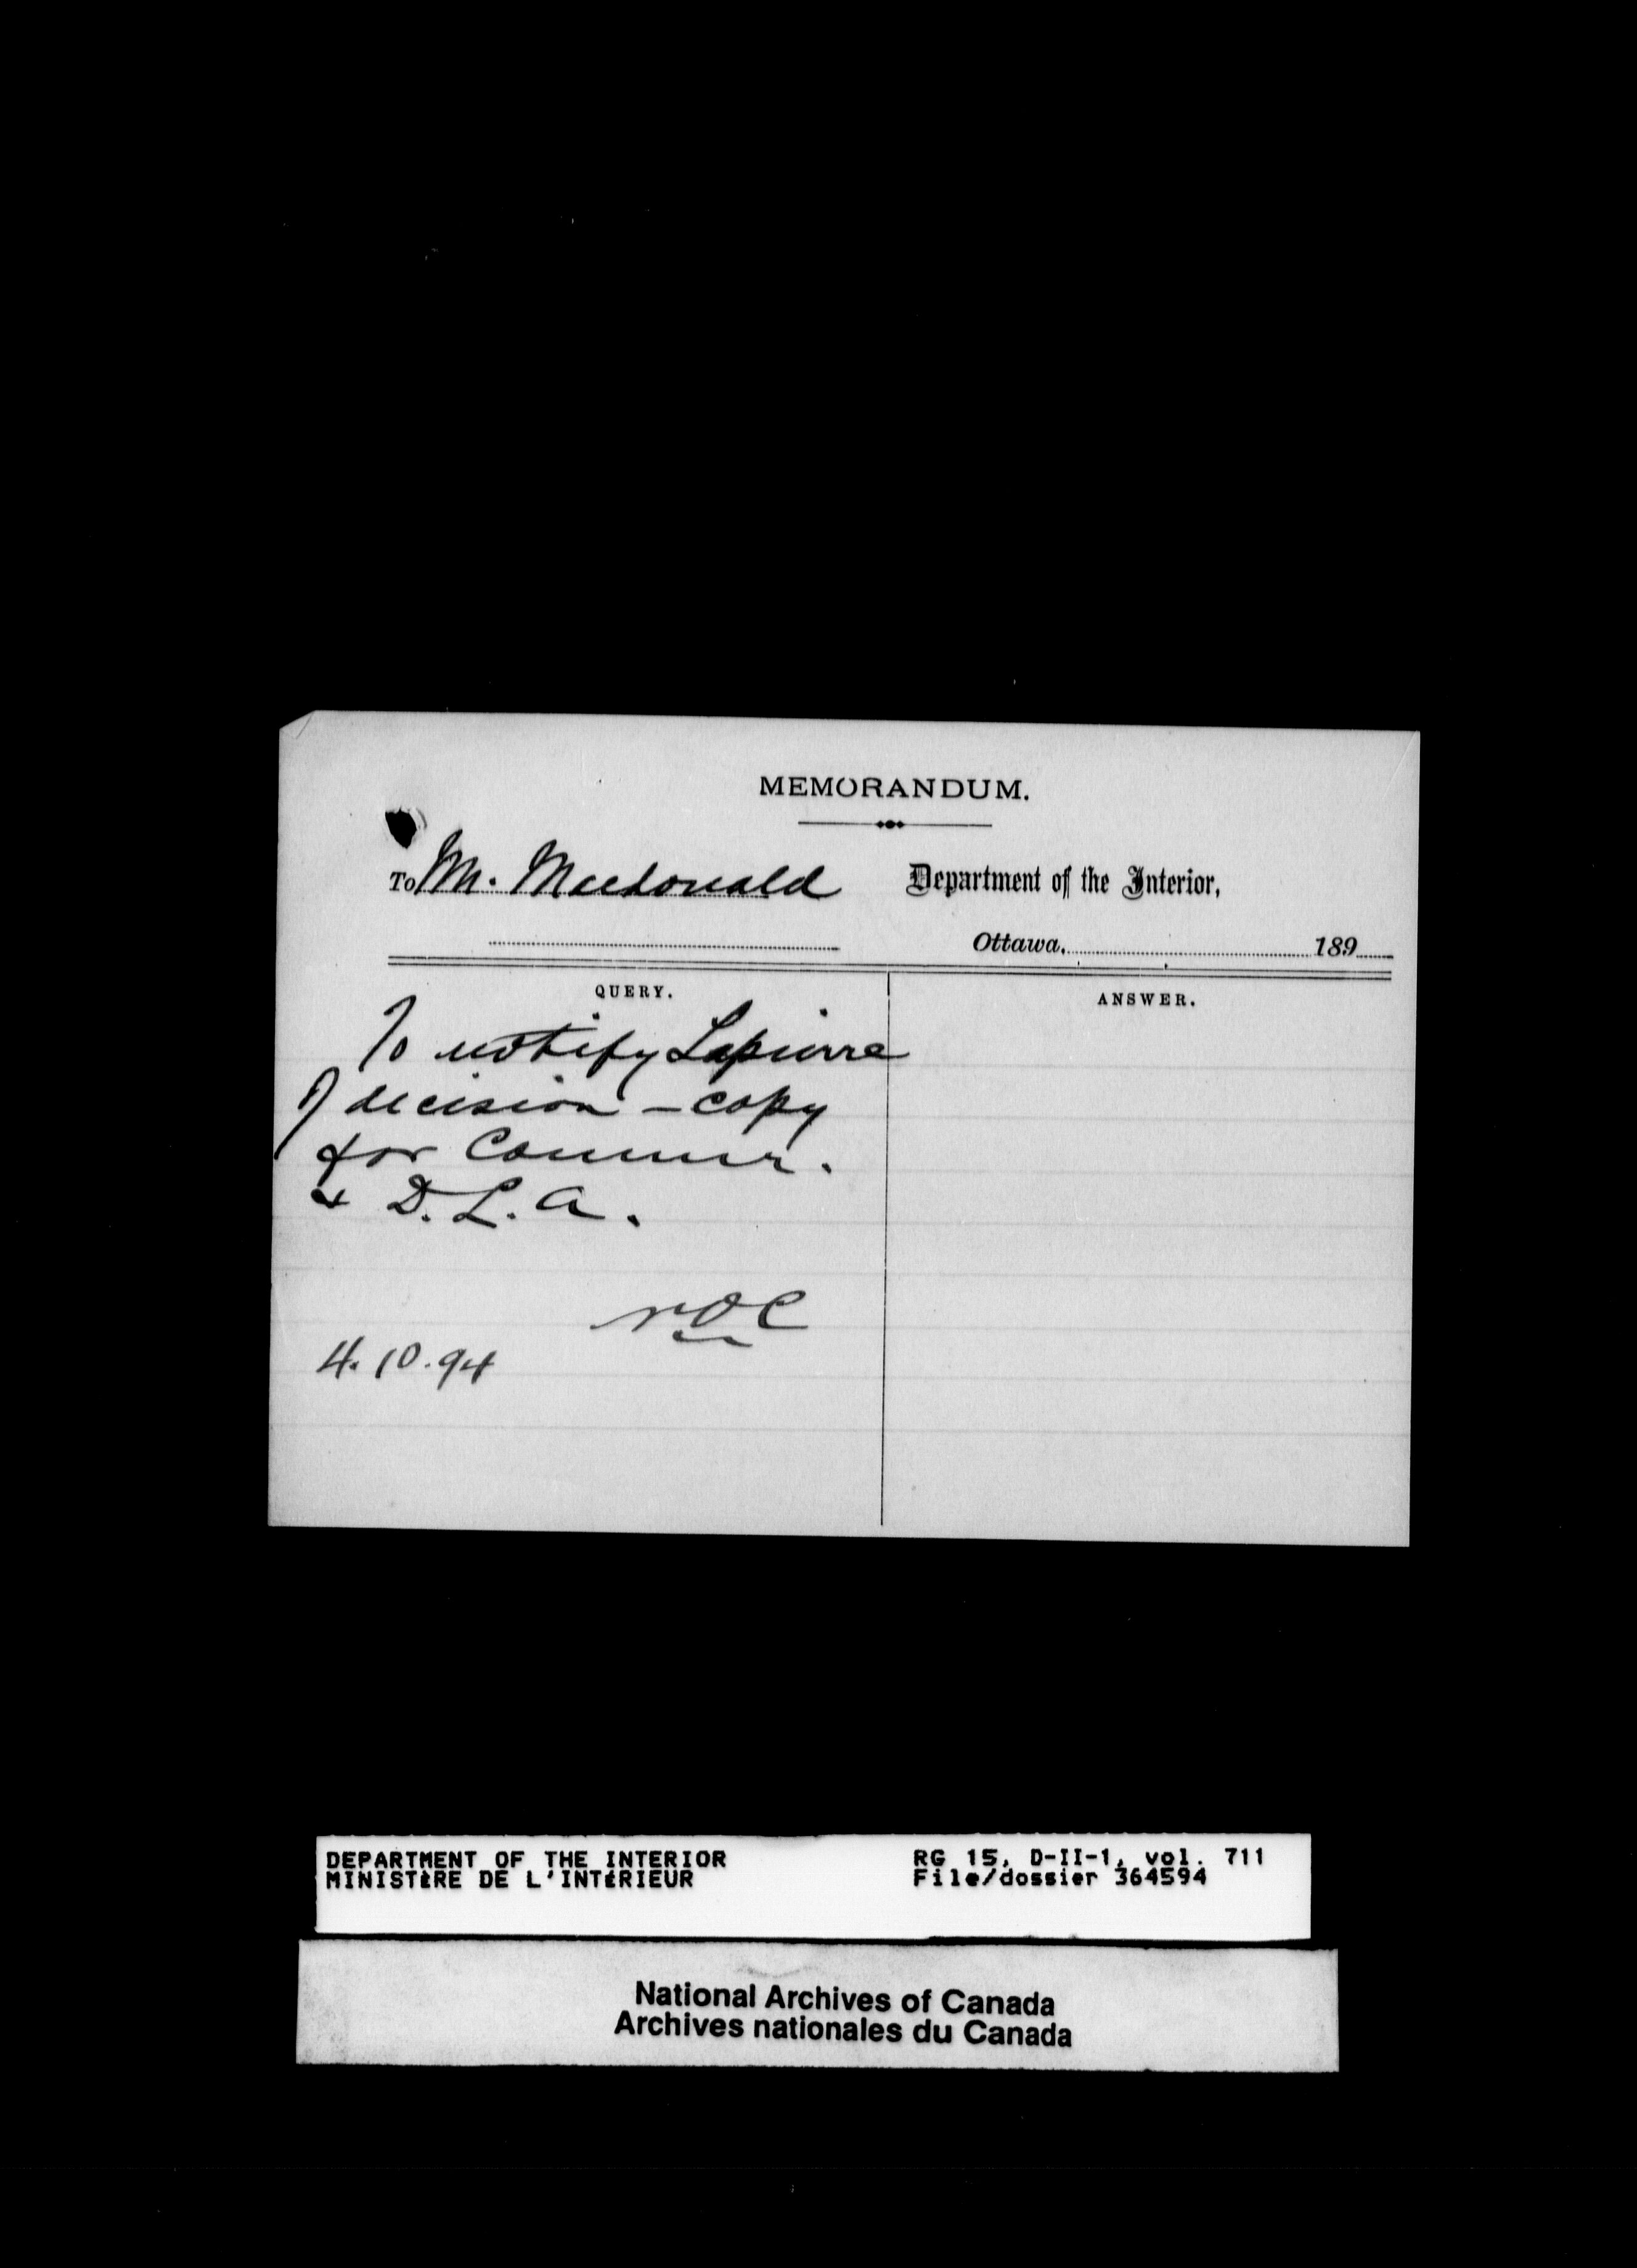 MEMORANDUM.
To Mr. Macdonald
Department of the Interior,
Ottawa, 189
QUERY.
ANSWER.
To notify Lapierre
of decision - copy
for Commr.
& D. L. A.
4.10.94
DEPARTMENT OF THE INTERIOR
MINISTÈRE DE L'INTÉRIEUR
RG 15, D-II-1, vol. 711
File/dossier 364594
National Archives of Canada
Archives nationales du Canada